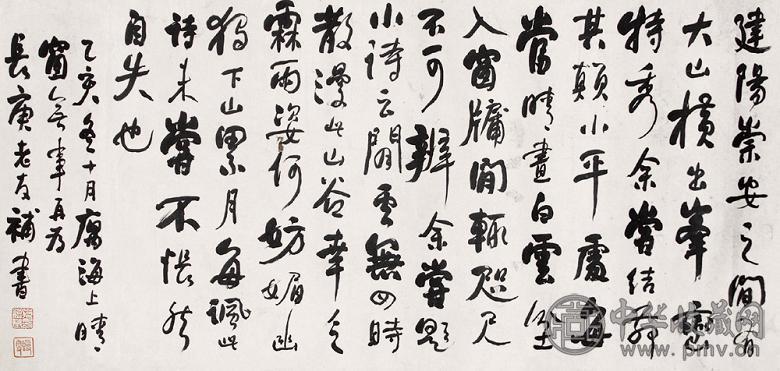 建陽崇安之間有
大山橫出峯巒
特秀余嘗結茅
其顛小平處每
當晴晝白雲坌
入窗牖間輒咫尺
不可辨余嘗題
小詩云閒雲無四時
散漫此山谷幸乏
霖雨姿何妨媚幽
獨下山累月每諷此
詩未嘗不悵然
自失也
乙亥冬十月寓海上晴
窗無事再為
長庚老友補書
中华收藏网
www.pmv.cn